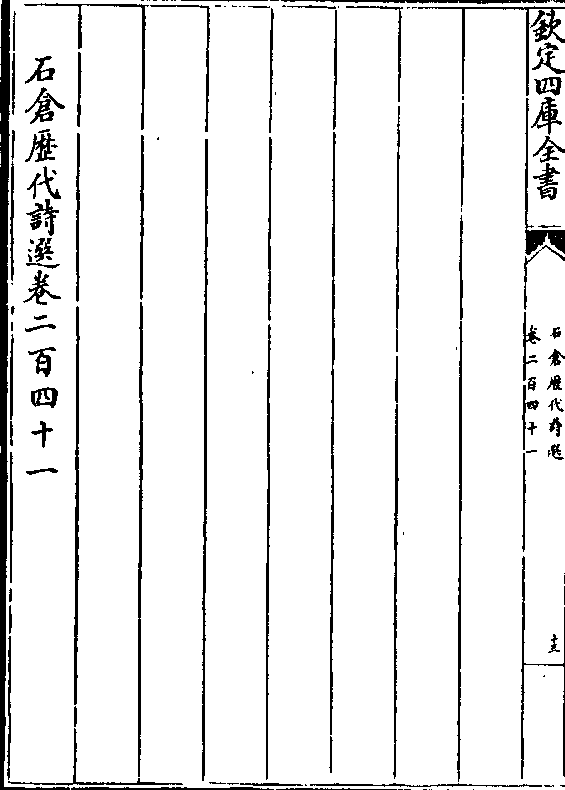 欽定四庫全書
石倉歴代詩選
卷二百四十一
十三
石倉歴代詩選卷二百四十一